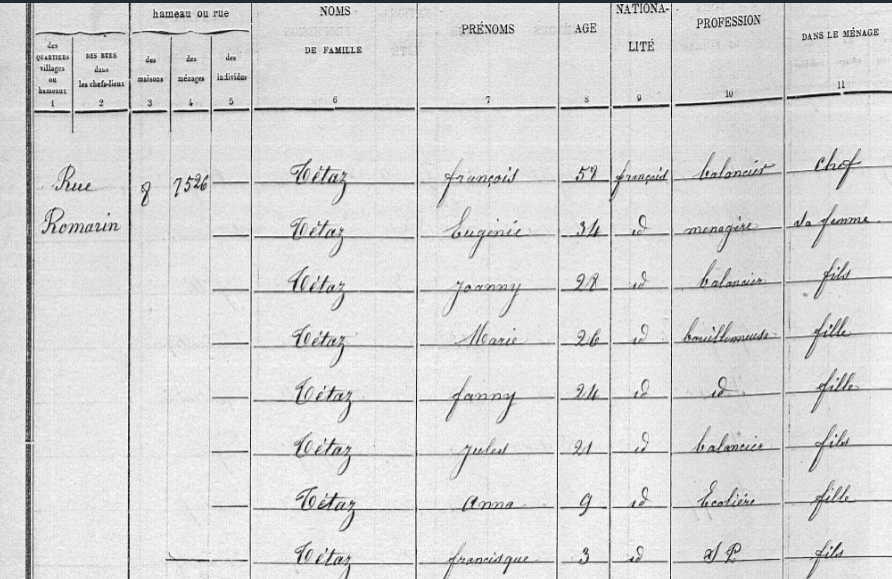 hameau ou rue NOMS DE FAMILLE PRÉNOMS AGE NATIONA-LITÉ PROFESSION DANS LE MÉNAGE
des QUARTIERS villages ou hameaux DES RUES dans les chefs-lieux des maisons des ménages des individus
1 2 3 4 5 6 7 8 9 10 11
Rue Romarin 8 7526 Tétaz françois 52 français balancier chef
Tétaz Eugénie 34 id ménagère sa femme
Tétaz Joanny 28 id balancier fils
Tétaz Marie 26 id fille
Tétaz fanny 24 id id fille
Tétaz Jules 21 id balancier fils
Tétaz Anna 9 id Ecolière fille
Tétaz francisque 3 id SP fils